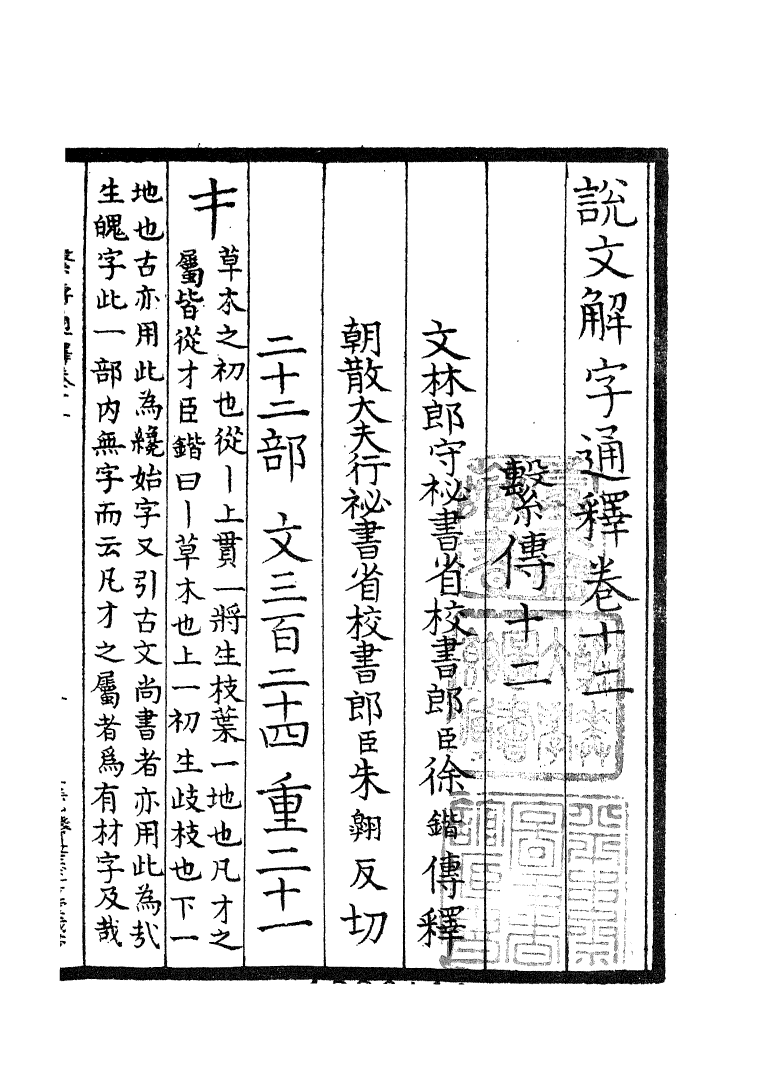 說文解字通釋卷十二
繫傳十二
文林郎守祕書省校書郎臣徐鍇傳釋
朝散大夫行祕書省校書郎臣朱翱反切
二十二部 文三百二十四 重二十一
草木之初也從丨上貫一將生枝葉一地也凡才之
屬皆從才臣鍇曰丨草木也上一初生歧枝也下一
地也古亦用此為纔始字又引古文尚書者亦用此為㢤
生魄字此一部内無字而云凡才之屬者爲有材字及哉